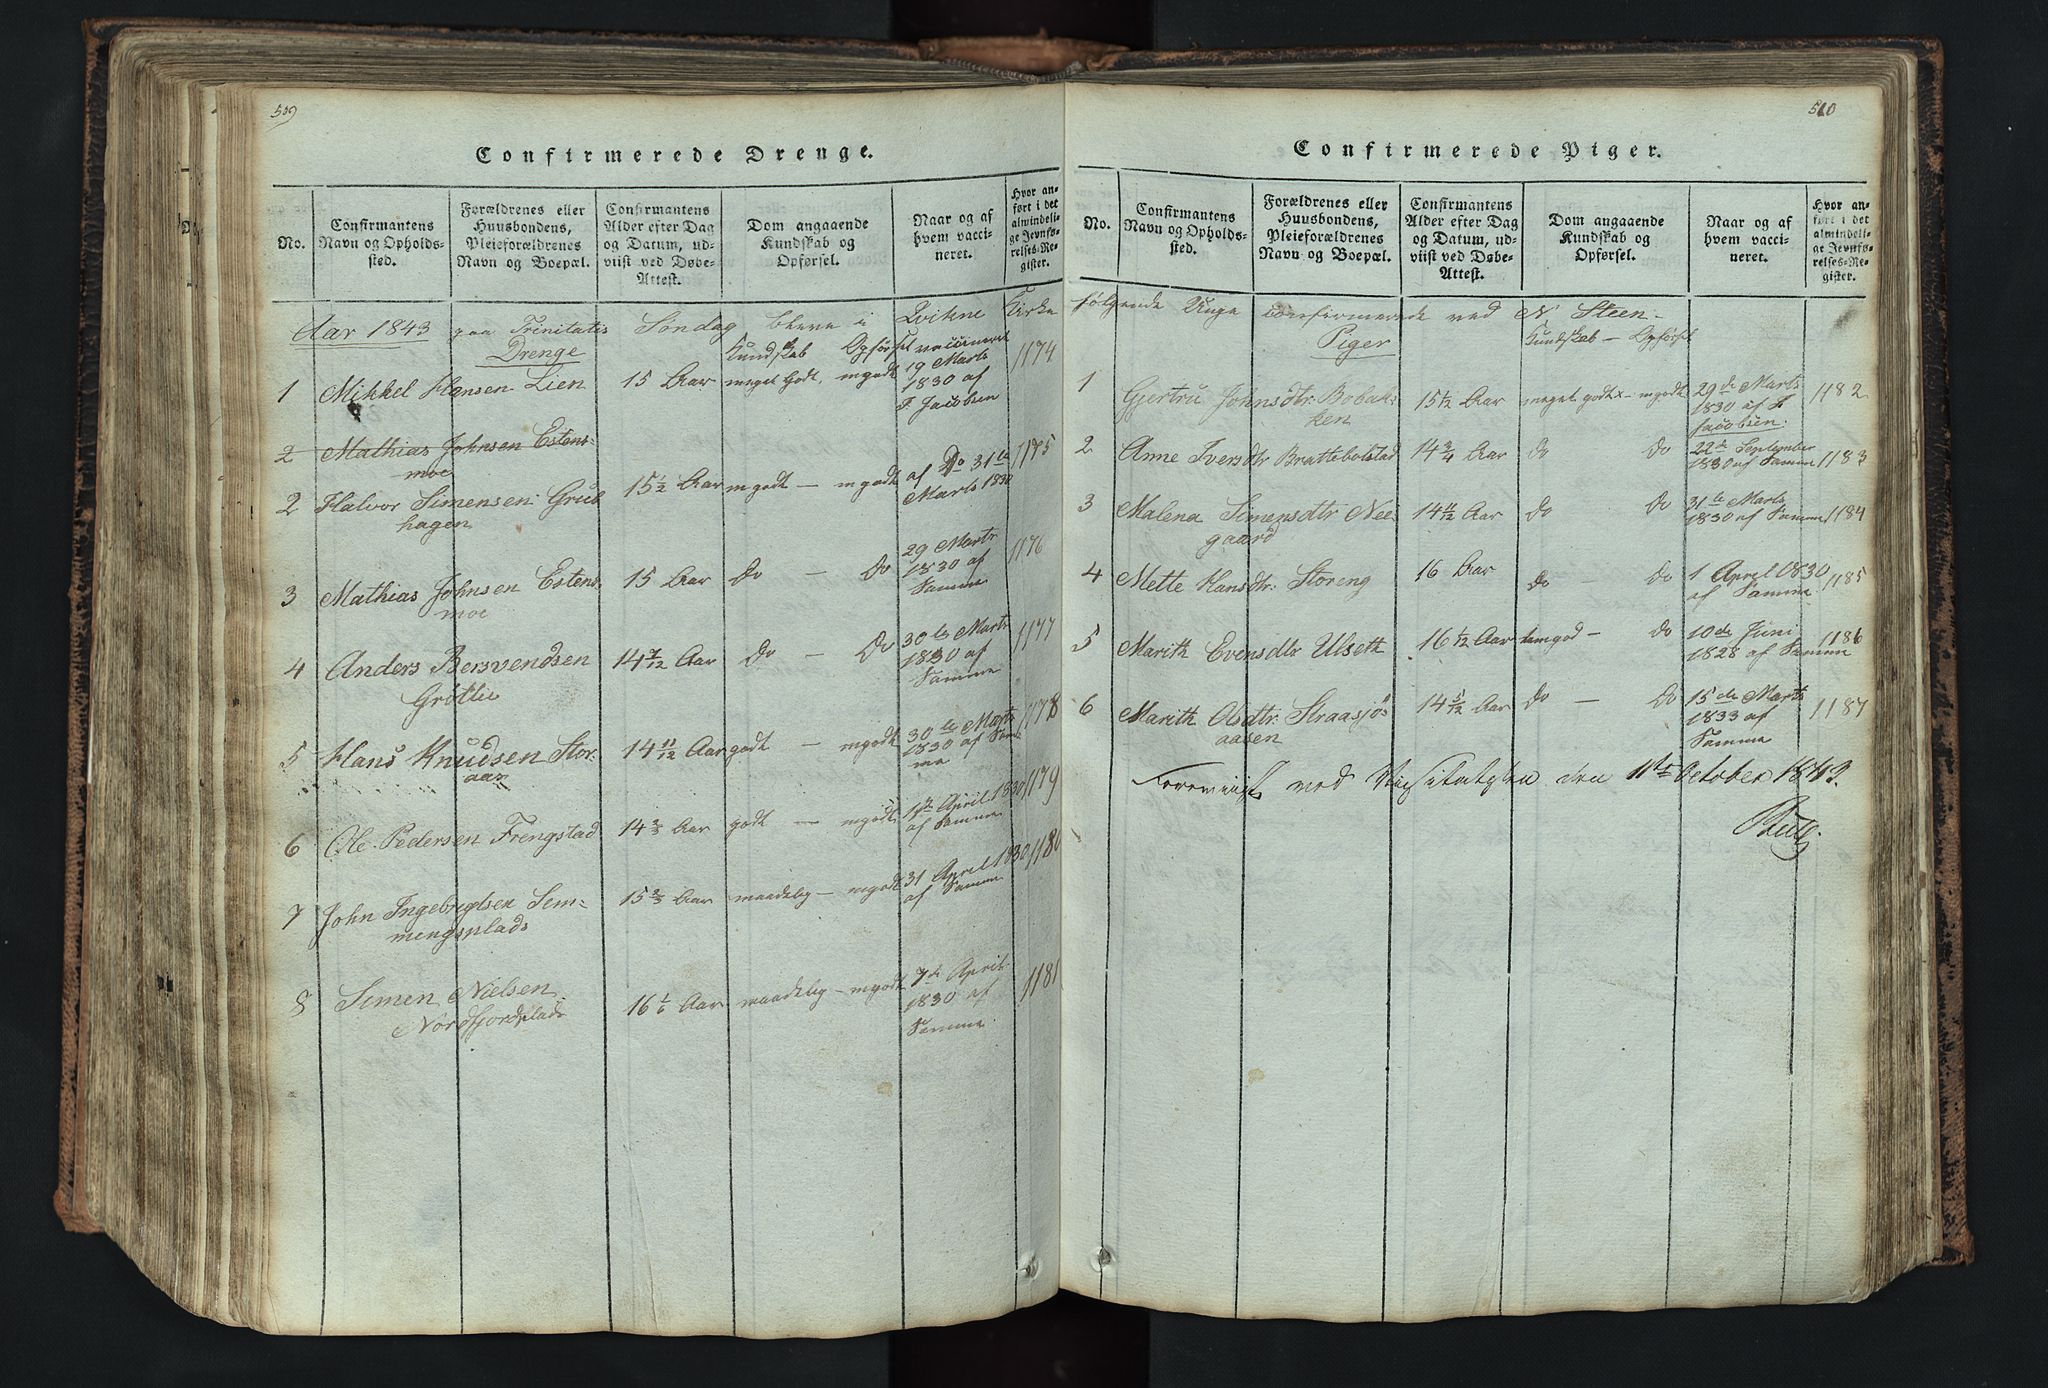 509
Confirmerede Drenge.
No.
Confirmantens
Navn og Opholds-
sted.
Forældrenes eller
Huusbondens,
Pleieforældrenes
Navn og Boepæl.
Confirmantens
Alder efter Dag
og Datum, ud-
viist ved Døbe-
Attest.
Dom angaaende
Kundskab og
Opførsel.
Naar og af
hvem vacci-
neret.
Hvor an-
ført i det
almindeli-
ge Jevnfø-
relses-Re-
gister.
Aar 1843 paa Trinitatis Søndag bleve i Qvikne Kirke
Drenge Kundskab Opførsel vaccineret
1 Mikkel Hansen Lien 15 Aar meget godt, mgodt 19 Marts 1830 af F. Jacobsen 1174
2 Mathias Johnsen Estens-
moe
2 Halvor Simensen Grub
hagen 15 1/2 Aar mgodt — mgodt af Do 31te Marts 1830 1175
3 Mathias Johnsen Estens-
moe 15 Aar Do — Do 29 Marts 1830 af Samme 1176
4 Anders Bersvendsen
Grøtlie 14 7/12 Aar Do — Do 30te Marts 1830 af Samme 1177
5 Hans Knudsen Stor-
aan 14 11/12 Aar godt — mgodt 30te Marts 1830 af Sam-
me 1178
6 Ole Pedersen Frengstad 14 2/3 Aar godt — mgodt 1ste April 1830 af Samme 1179
7 John Ingebrigtsen Sem-
mengsplads 15 2/3 Aar maadelig — mgodt 31 April 1830 af Samme 1180
8 Simen Nielsen
Nordfjordplads 16 1/6 Aar maadelig — mgodt 7de April 1830 af Samme 1181
510
Confirmerede Piger.
No.
Confirmantens
Navn og Opholds-
sted.
Forældrenes eller
Huusbondens,
Pleieforældrenes
Navn og Boepæl.
Confirmantens
Alder efter Dag
og Datum, ud-
viist ved Døbe-
Attest.
Dom angaaende
Kundskab og
Opførsel.
Naar og af
hvem vacci-
neret.
Hvor an-
ført i det
almindeli-
ge Jevnfø-
relses-Re-
gister.
følgende Unge confirmerede ved N Steen-
Piger Kundskab — Opførsel
1 Gjertru Johnsdtr Bobak-
ken 15 1/2 Aar meget godt — mgodt 29de Marts 1830 af F Jacobsen 1182
2 Anne Iversdtr Brattebolstad 14 3/4 Aar do Do 22de September 1830 af Samme 1183
3 Malena Simensdtr Nee-
gaard 14 11/12 Aar do Do 31te Marts 1830 af Samme 1184
4 Mette Hansdtr. Storeng 16 Aar do — Do 1 April 1830 af Samme 1185
5 Marith Evensdtr Ulseth 16 1/12 Aar temgod — Do 10de Juni 1828 af Samme 1186
6 Marith Olsdtr. Straasjø-
aasen 14 5/12 Aar Do — Do 15de Marts 1833 af Samme 1187
Foreviist ved Visitatsen den 11te October 1843.